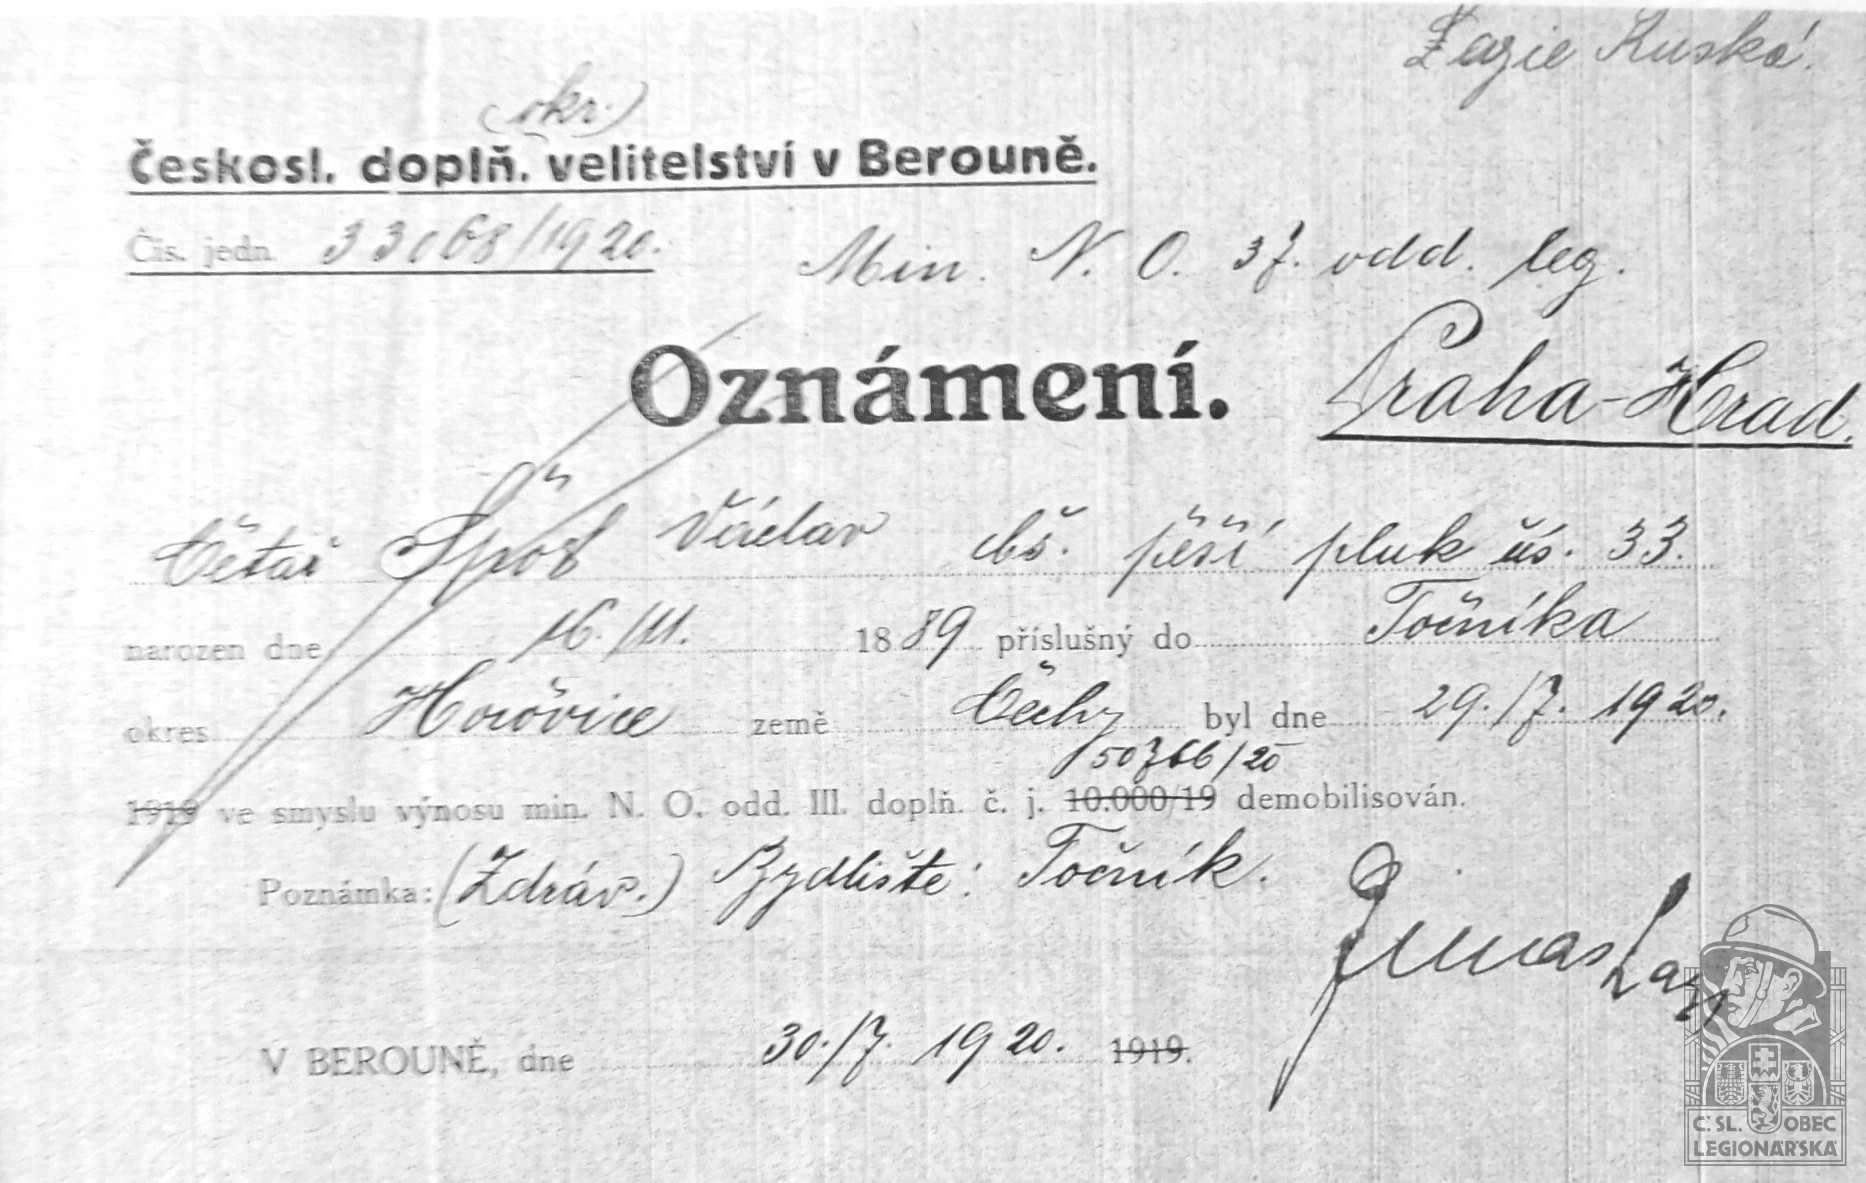 Legie Ruská.
(okr.)
Českosl. doplň. velitelství v Berouně.
Čís. jedn. 33068/1920.
Min. N. O. 37. odd. leg.
Oznámení.
Praha-Hrad.
Četař Václav čs. pěší pluk čís. 33.
narozen dne 16./III. 1889 příslušný do Točníka
okres Hořovice země Čechy byl dne 29./7. 1920.
50766/20
1919 ve smyslu výnosu min. N. O. odd. III. doplň. č. j. 10.000/19 demobilisován.
Poznámka: (Zdráv.) Bydliště: Točník.
V BEROUNĚ, dne 30./7. 1920. 1919.
Č. SL. OBEC
LEGIONÁŘSKÁ